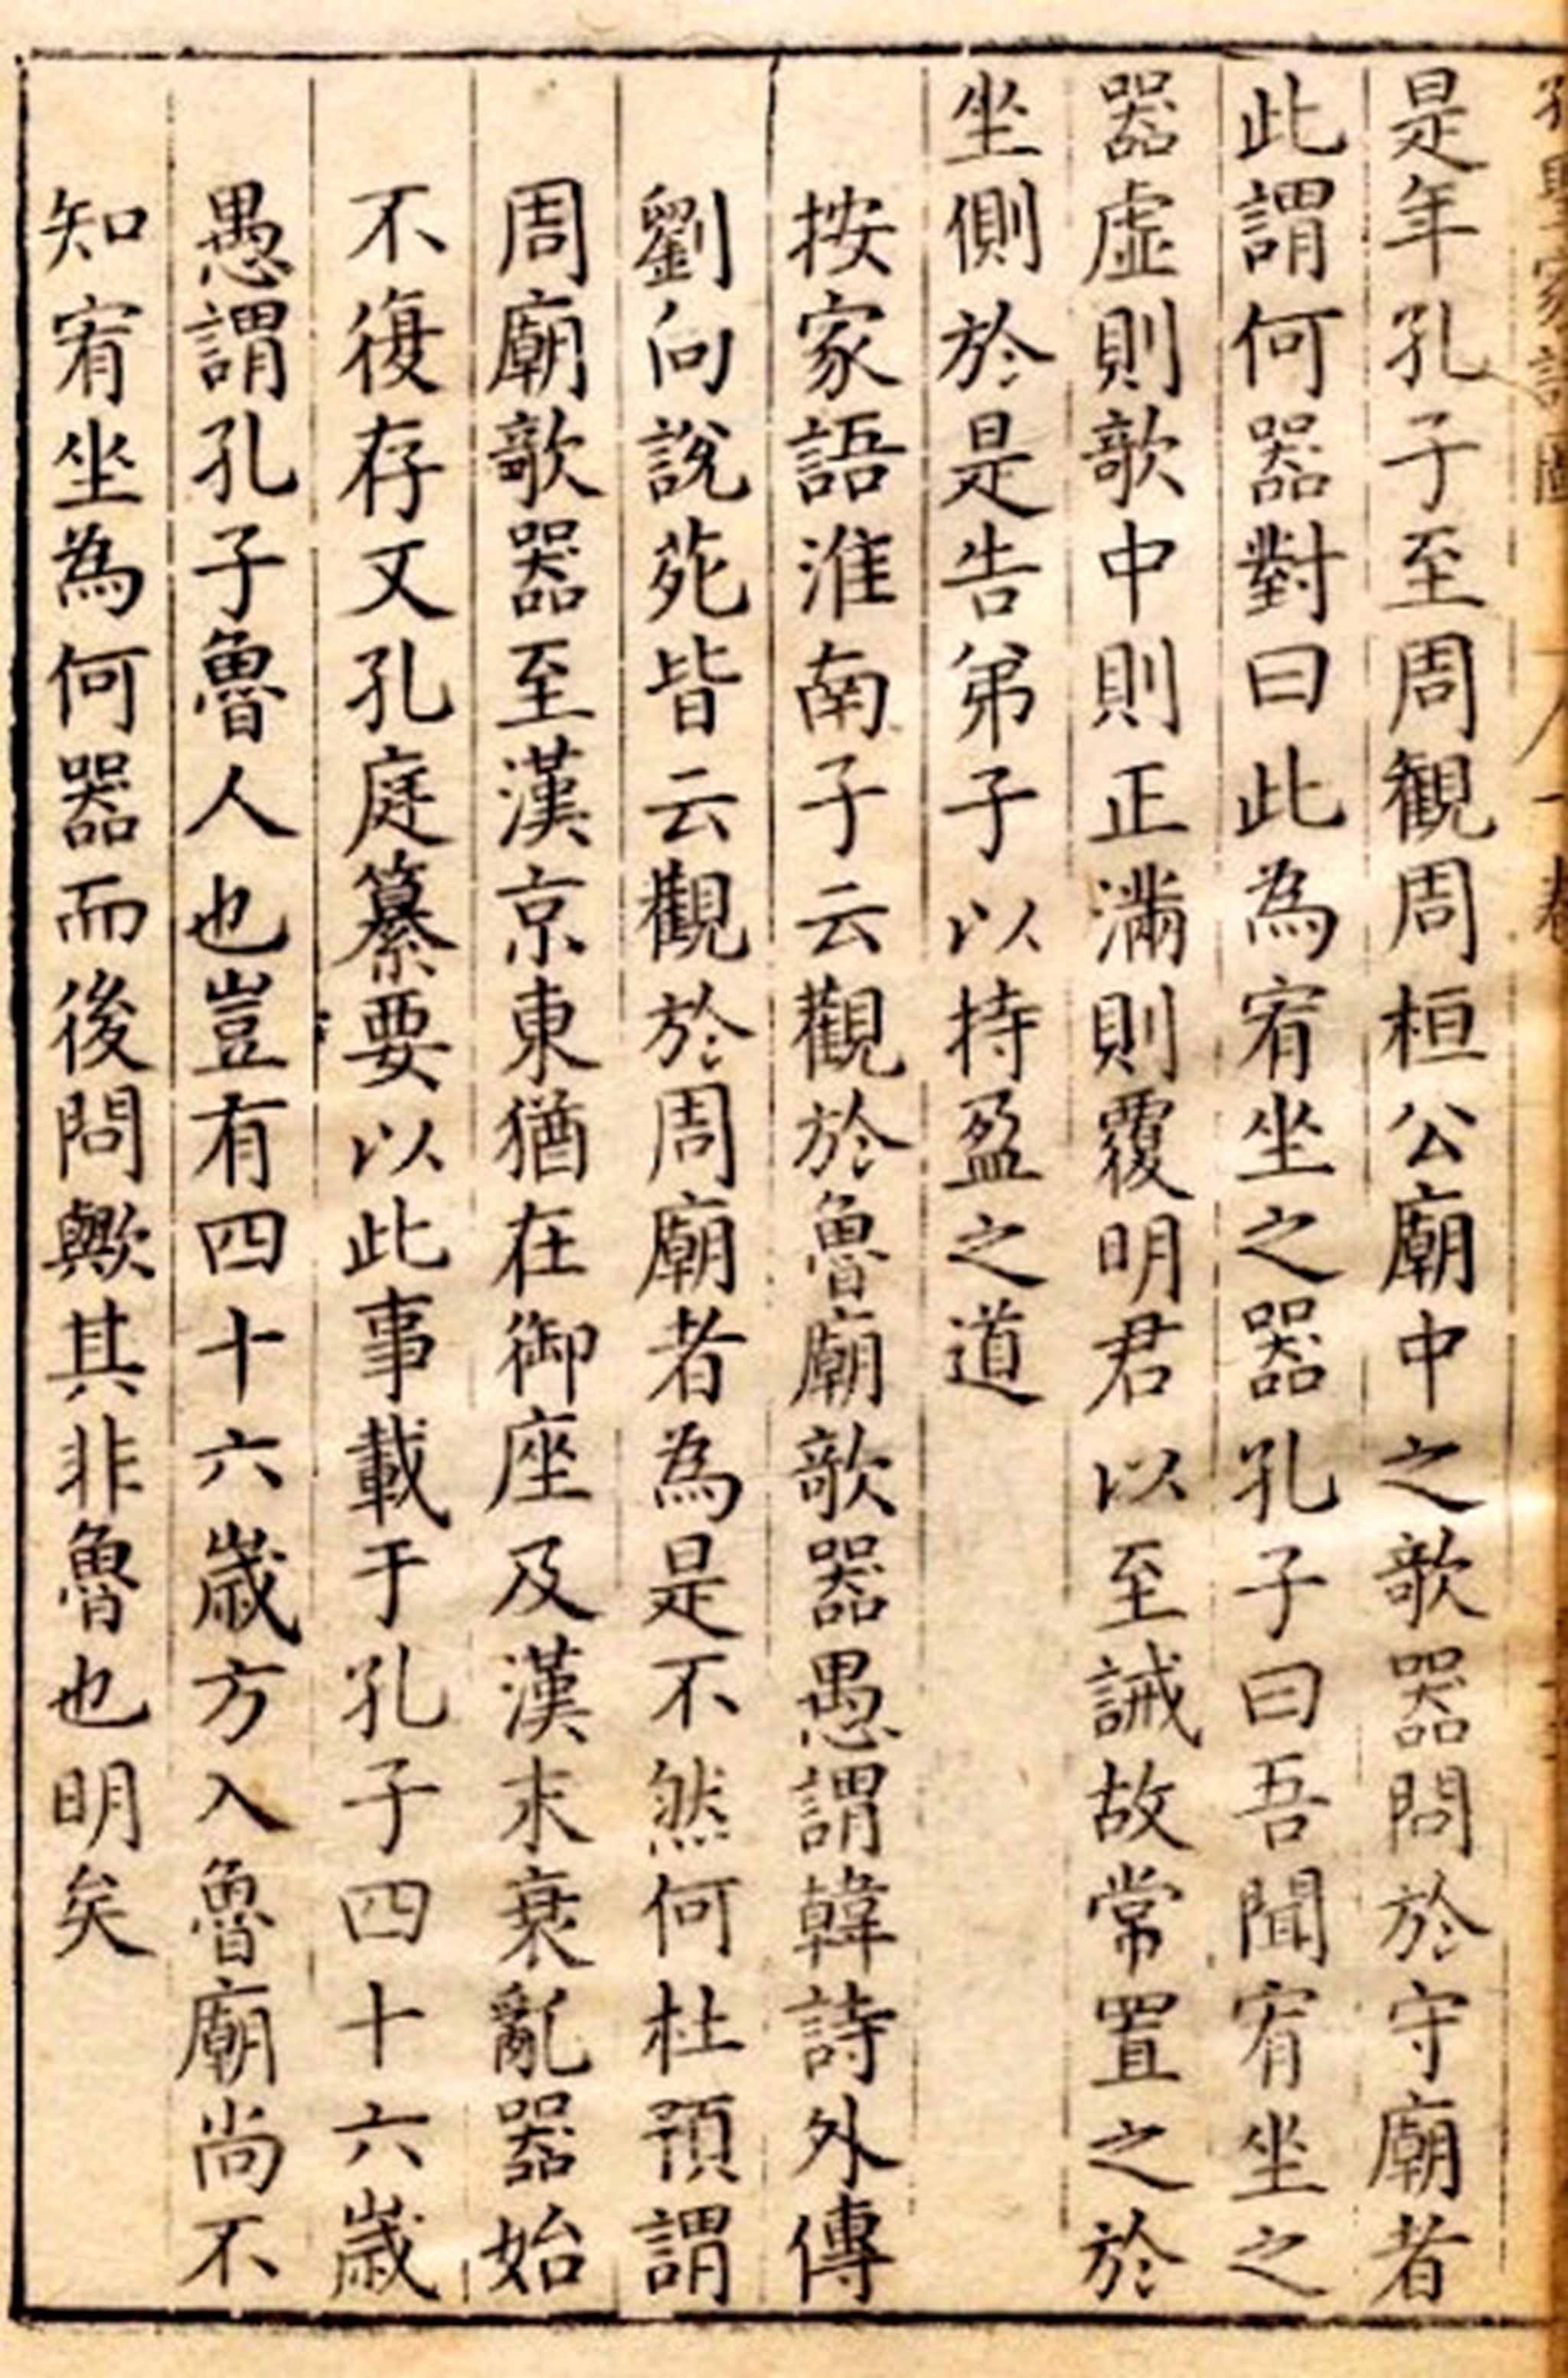 是年孔子至周觀周桓公廟中之欹器問於守廟者
此謂何器對曰此為宥坐之器孔子曰吾聞宥坐之
器虛則欹中則正滿則覆明君以至誡故常置之於
坐側於是告弟子以持盈之道
按家語淮南子云觀於魯廟欹器愚謂韓詩外傳
劉向說苑皆云觀於周廟者為是不然何杜預謂
周廟欹器至漢京東猶在御座及漢末衰亂器始
不復存又孔庭纂要以此事載于孔子四十六歲
愚謂孔子魯人也豈有四十六歲方入魯廟尚不
知宥坐為何器而後問歟其非魯也明矣